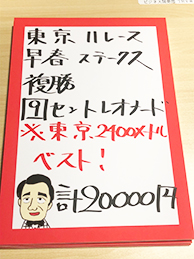 東京11レース
早春ステークス
複勝
9セントレオナード
※東京2400メートル
ベスト！
計20000円